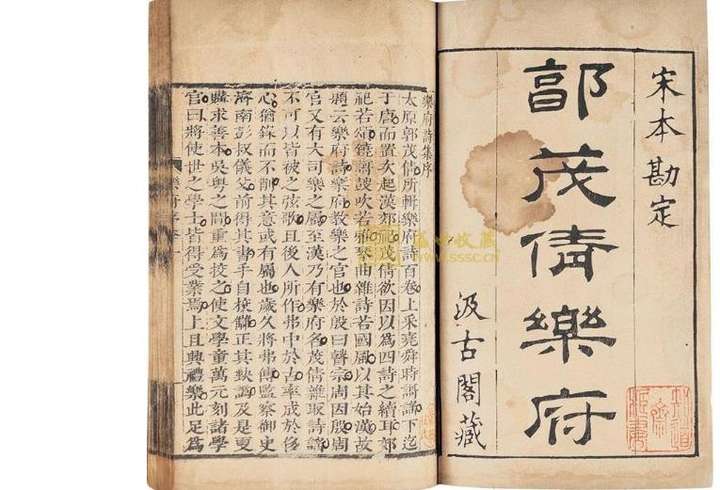 宋本勘定
郭茂倩樂府
汲古閣藏
樂府詩集序
太原郭茂倩所輯樂府詩百卷上采堯舜時謌謡下迄
于唐而置次起漢郊祀茂倩欲因以爲四詩之續耳郊
祀若頌鐃謌鼓吹若雅琴曲雜詩若國風以其始漢故
題云樂府詩樂府教樂之官也於殷曰瞽宗周因殷周
官又有大司樂之屬至漢乃有樂府名茂倩雖取詩謡
不可以皆被之弦歌且後人所作弗中於古率成於侈
心猶錄而不削其意或有屬也歲久將弗傳監察御史
濟南彭叔儀父前得其書手自校讎正其缺譌及是更
購求善本吳粵之間重爲校之使文學童萬元刻諸學
官曰將使世之學士皆得受業焉上且興禮樂此足爲
盛世收藏
WWW.SSSC.CN